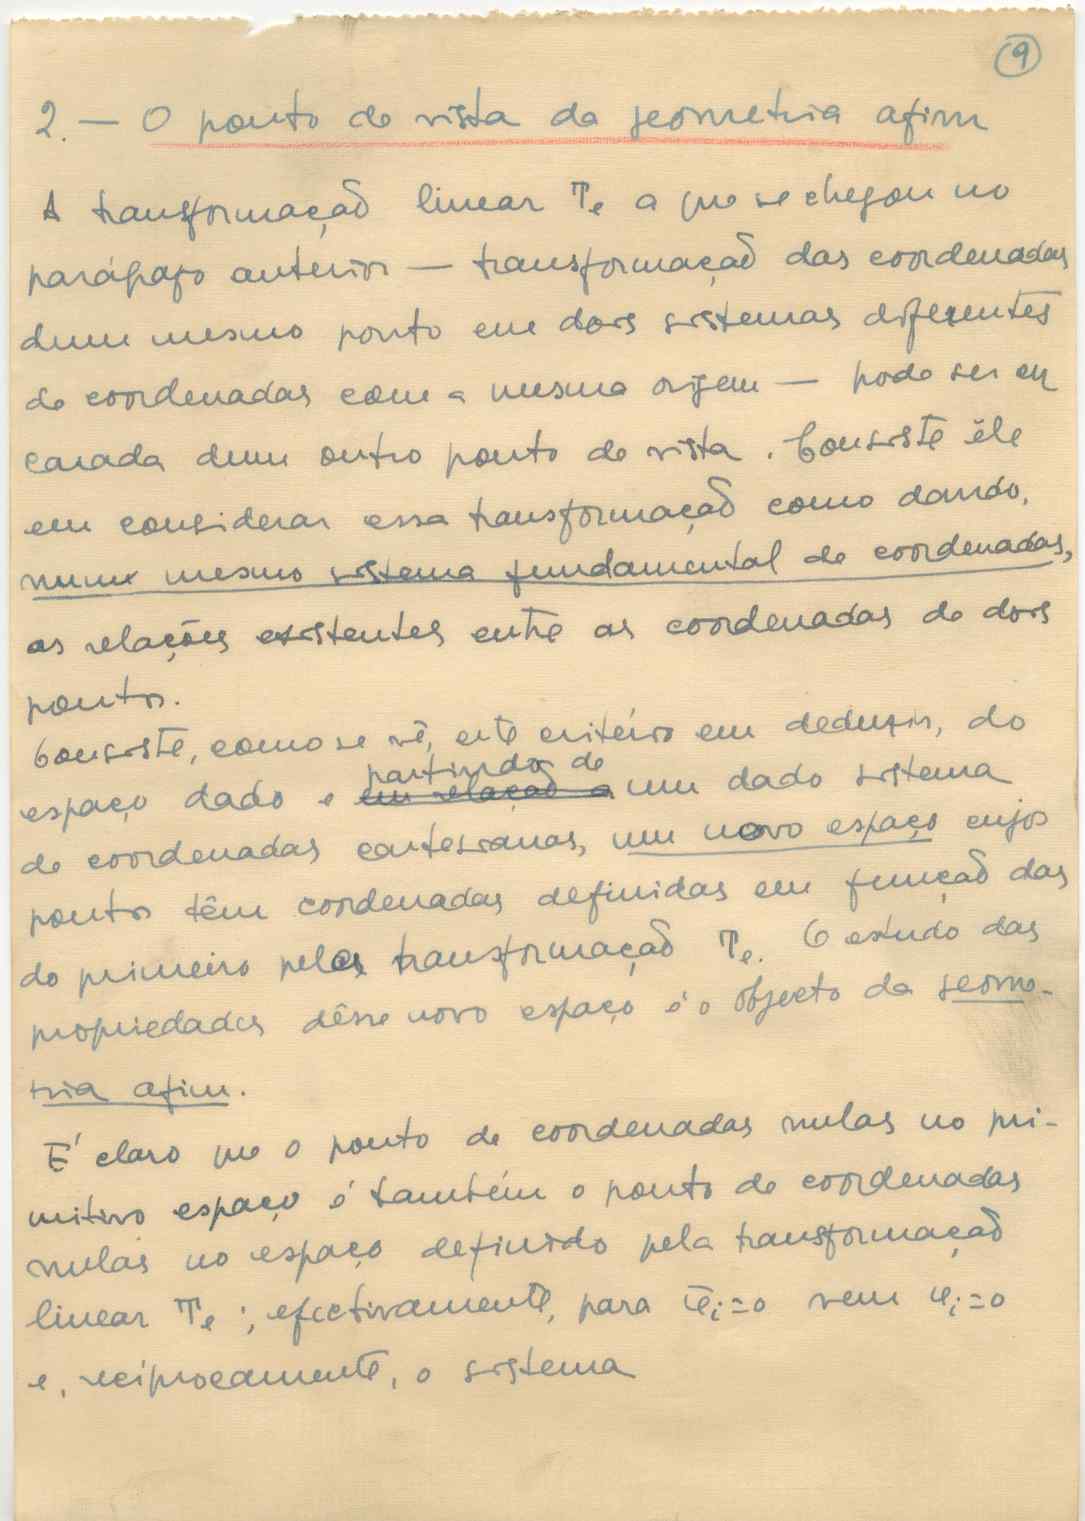 9
2. — O ponto de vista da geometria afim
A transformação linear Te a que se chegou no
parágrafo anterior — transformação das coordenadas
dum mesmo ponto em dois sistemas diferentes
de coordenadas com a mesma origem — pode ser en
carada dum outro ponto de vista. Consiste êle
em considerar essa transformação como dando,
num mesmo sistema fundamental de coordenadas,
as relações existentes entre as coordenadas de dois
pontos.
Consiste, como se vê, este critério em deduzir, do
partindo de
espaço dado e em relação a um dado sistema
de coordenadas cartesianas, um novo espaço cujos
pontos têm coordenadas definidas em função das
do primeiro pela transformação Te. O estudo das
propriedades dêsse novo espaço é o objecto da geome-
tria afim.
É claro que o ponto de coordenadas nulas no pri-
mitivo espaço é também o ponto de coordenadas
nulas no espaço definido pela transformação
linear Te ; efectivamente, para i=0 vem i=0
e, reciprocamente, o sistema